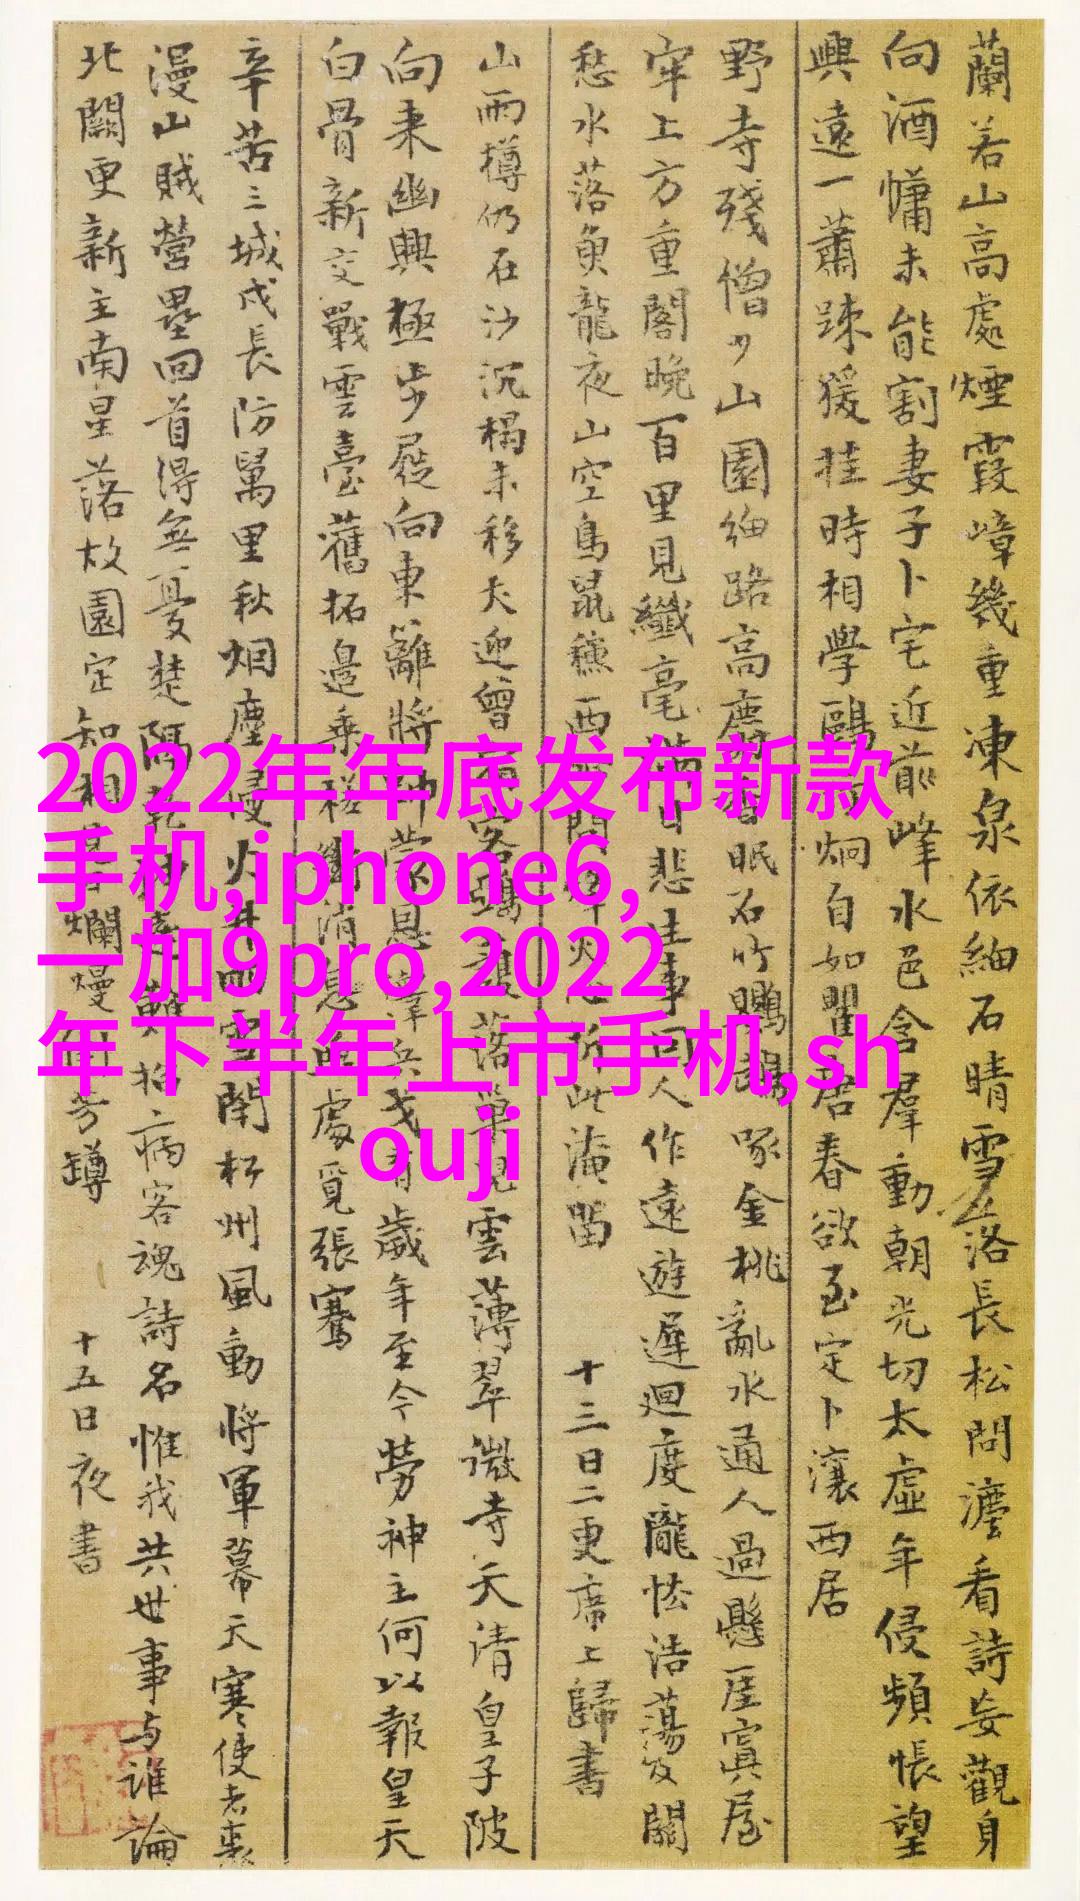 蘭若山高處煙霞嶂幾重凍泉依細石晴雪落長松問灋看詩妄觀身
向酒慵未能割妻子卜宅近前峰水色含羣動朝光切太虛年侵頻悵望
興遠一蕭踈猨挂時相學鷗炯自如瞿居春欲至定卜瀼西居
野寺殘僧少山園細路高麝香眠石竹鸚鵡啄金桃亂水通人過懸崖寘屋
牢上方重閣晚百里見纖毫滿目悲生事因人作遠遊遲迴度隴怯浩蕩及關
愁水落魚龍夜山空鳥鼠穐西問烽火心折此淹留 十三日二更席上歸書
山雨樽仍在沙沉榻未移犬迎曾宿客鵶護落巢兒雲薄翠微寺天清皇子陂
向来幽興極步屐向東籬將帥蒙恩澤兵戈有歲年至今勞神主何以報皇天
白骨新交戰雲臺舊拓邊乗槎斷消息處覓張騫
辛苦三城戍長防萬里秋烟塵侵火井雨雪閉松州風動將軍幕天寒使者裘
漫山賊營壘回首得無憂楚隅乾坤遠難招病客魂詩名惟我共世事与誰論
北闕更新主南星落故園定知相見爛熳倒芳罇 十五日夜書
2022年年底发布新款
手机,iphone6,
一加9pro,2022
年下半年上市手机,sh
ouji